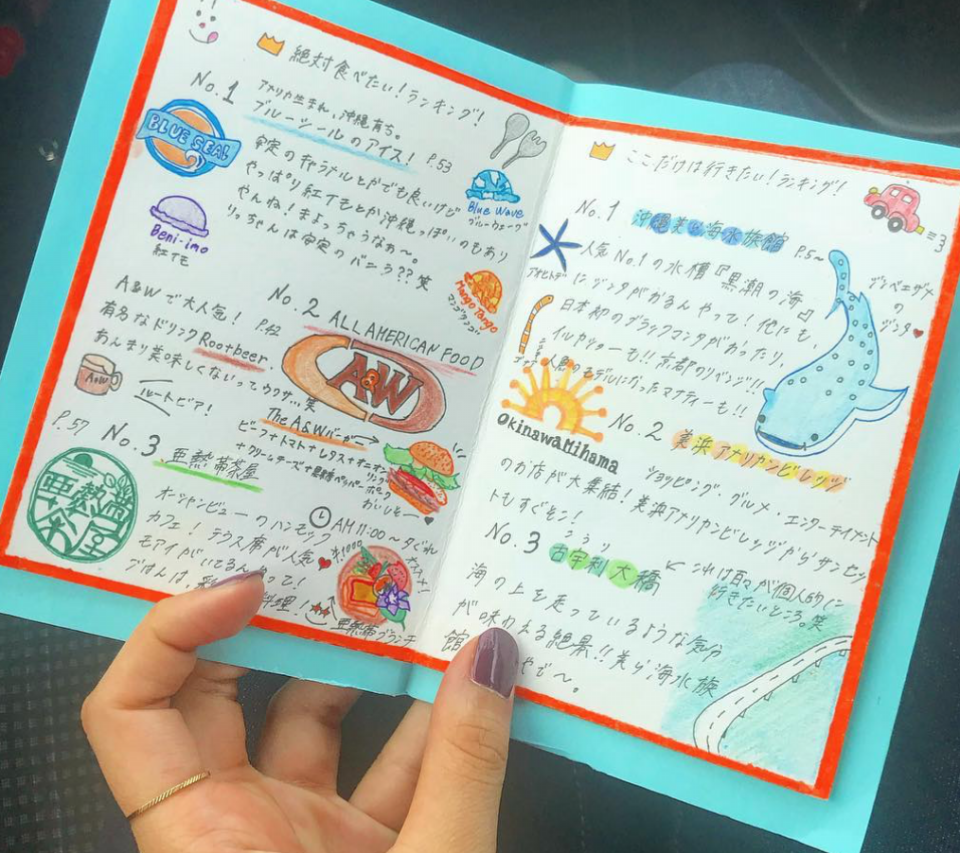 絶対食べたい！ランキング！
No.1
アメリカ生まれ、沖縄育ち。
ブルーシールのアイス！ P.53
BLUE SEAL
安定のキャラメルとかでも良いけど
やっぱり紅イモとか沖縄っぽいのもあり
やんね！まよっちゃうなぁ〜。
りっちゃんは安定のバニラ??笑
Blue Wave
ブルーウェーブ
Beni-imo
紅イモ
Mango Tango
マンゴタンゴ
No.2 ALL AMERICAN FOOD
A&Wで大人気！ P.42
有名なドリンク Rootbeer.
あんまり美味しくないってウワサ...笑
A&W
A&W
ルートビア！
The A&Wバーガー
ビーフ+トマト+レタス+オニオンリング
+クリームチーズ+黒糖ペッパーポーク
おいしそー
P.57 No.3 亜熱帯茶屋
亜熱帯茶屋
オーシャンビューのハンモック
カフェ！テラス席が人気
モアイがいてるんやって！
ごはんは、
料理！
AM11:00〜夕ぐれ
¥1000
オススメ！
亜熱帯ブランチ
ここだけは行きたい！ランキング！
No.1 沖縄美ら海水族館 P.5〜
アオヒトデ
人気No.1の水槽『黒潮の海』
にジンタがおるんやって！他にも、
日本初のブラックマンタがおったり、
イルカショーも!!京都のリベンジ!!
人魚のモデルになったマナティーも!!
ジンベエザメ
の
ジンタ
Okinawa Mihama
No.2 美浜アメリカンビレッジ
ショッピング・グルメ・エンターテイメント
のお店が大集結！美浜アメリカンビレッジからサンセッ
トもすぐそこ！
No.3 古宇利大橋
こうり
これは百々が個人的に
行きたいところ。笑
海の上を走っているような気分
が味わえる絶景!!美ら海水族
館
やで〜。